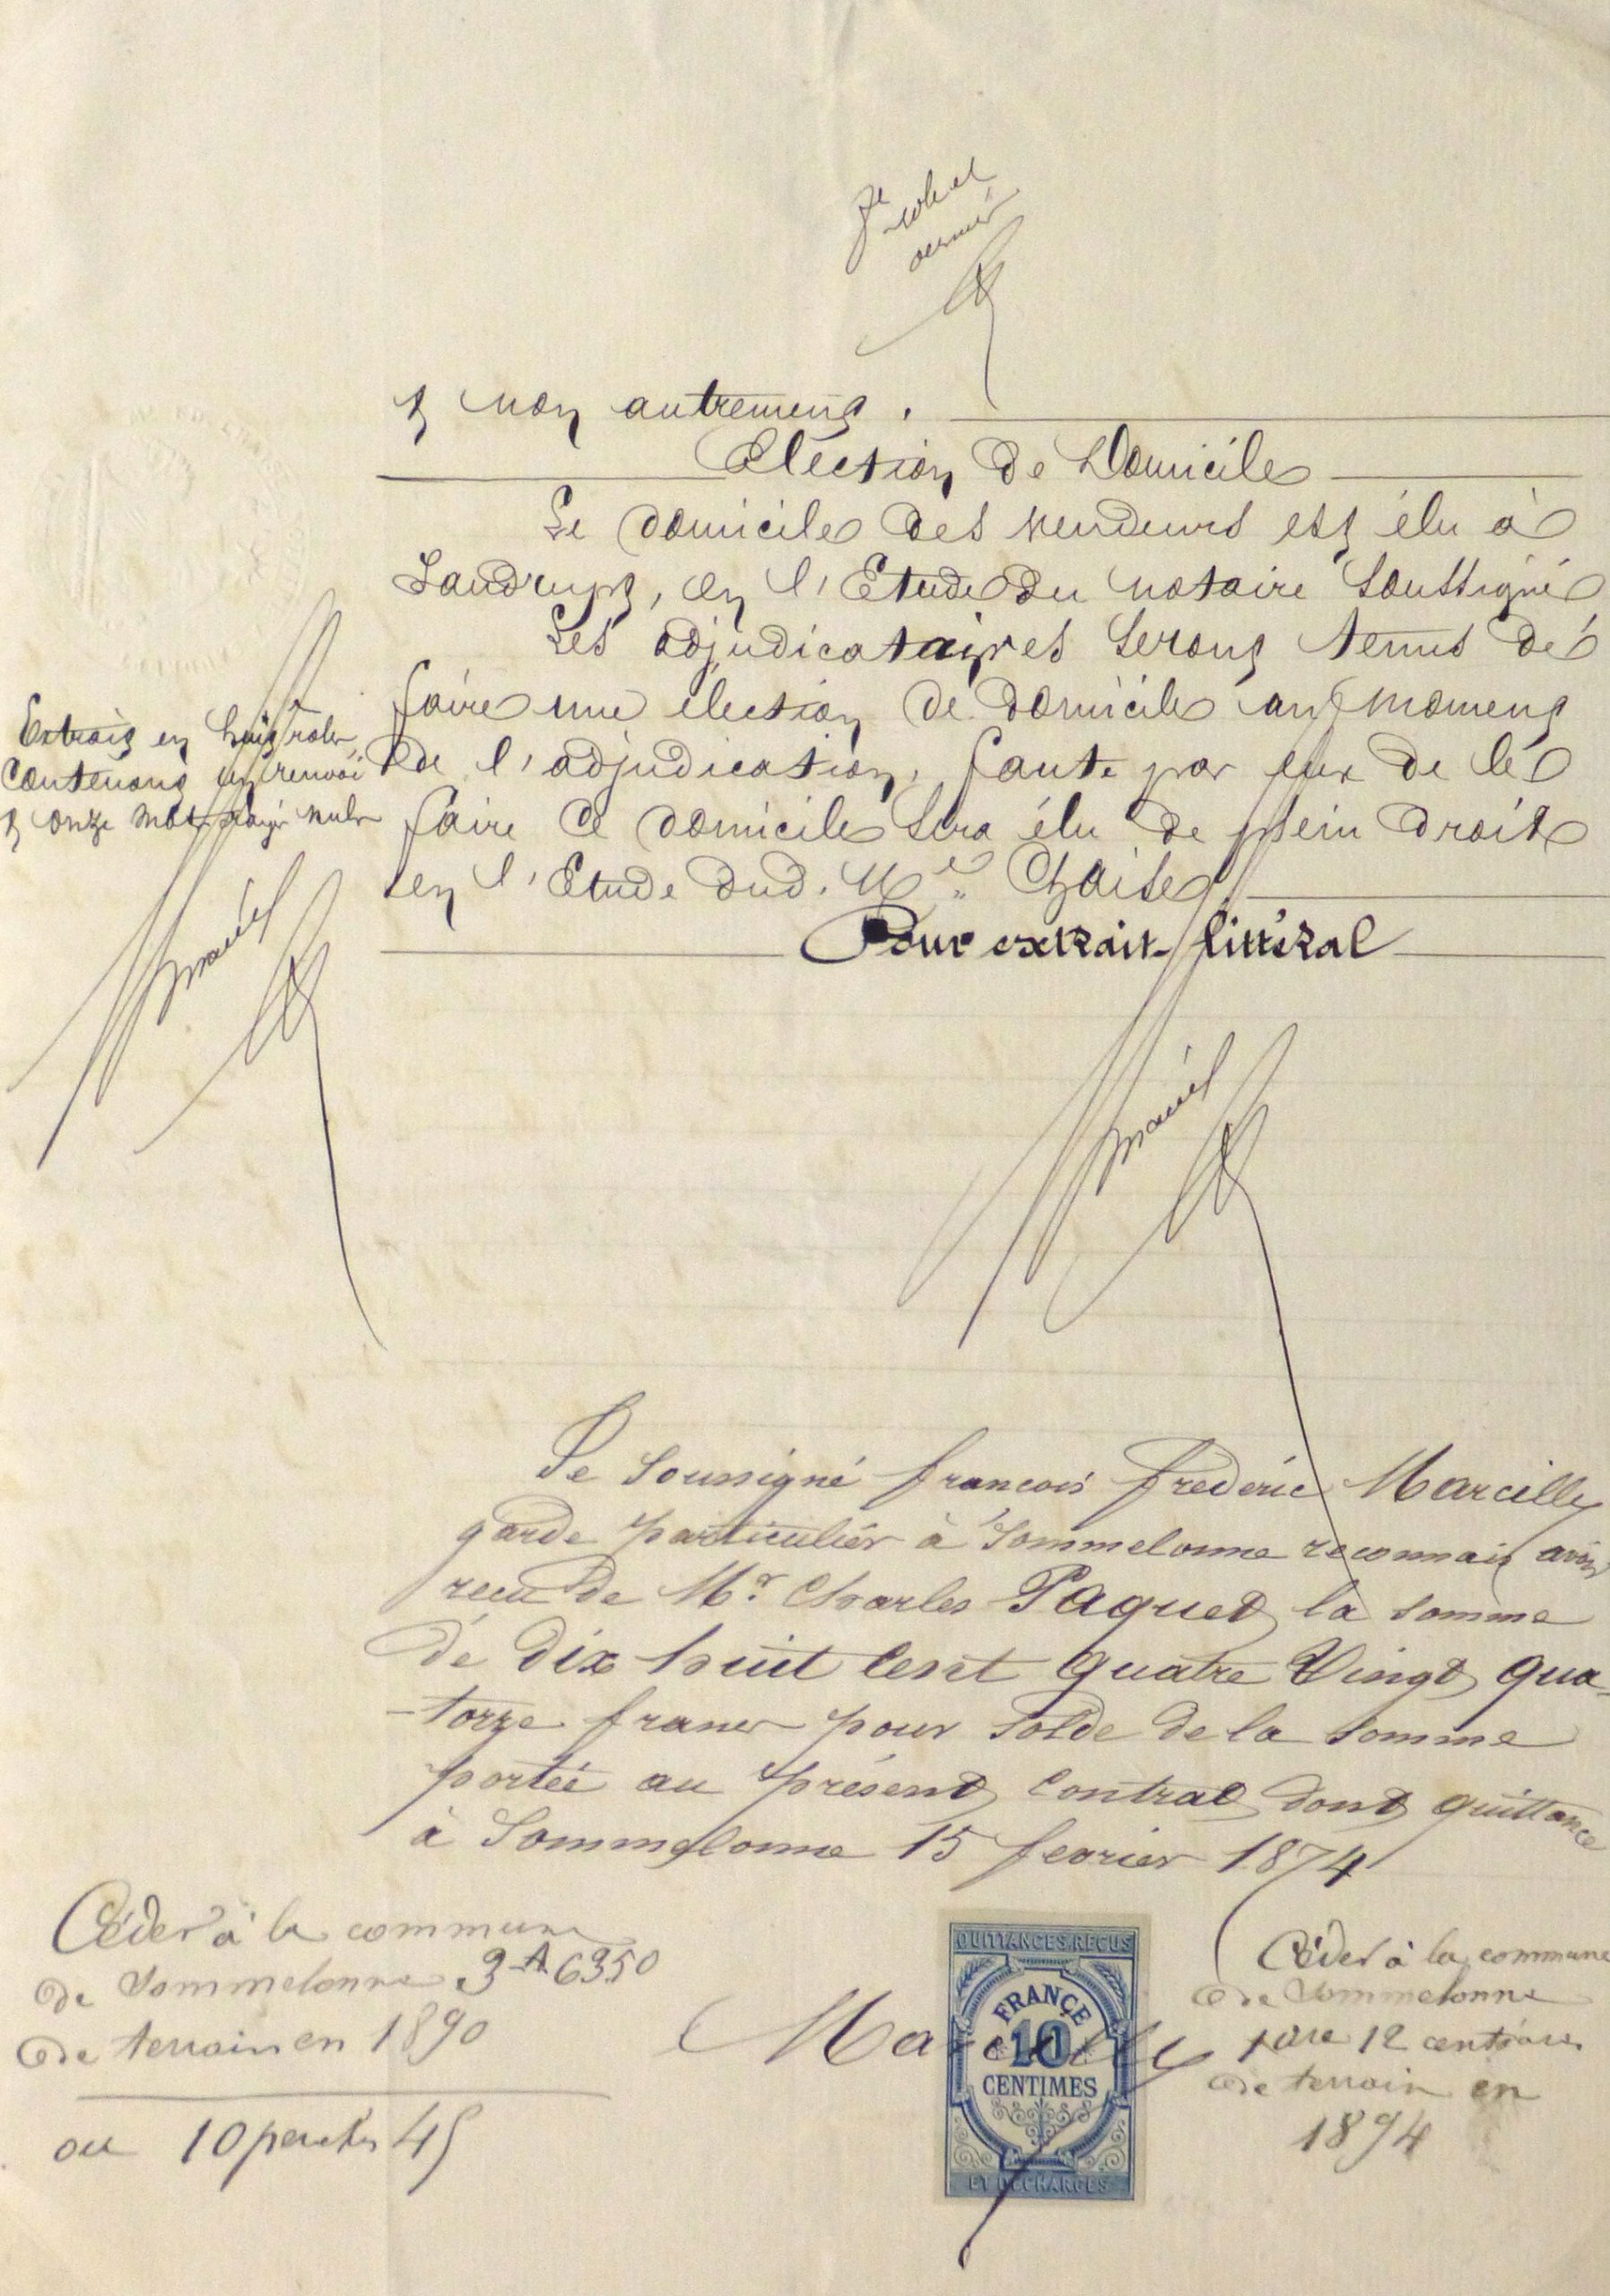 8e
rôle et
dernier
& non autrement.
Election de Domicile
Le domicile des vendeurs est élu à
Landrupt, en l'Etude du notaire soussigné
Les adjudicataires seront tenus de
faire une élection de domicile au moment
de l'adjudication, faute par eux de le
faire ce domicile sera élu de plein droit
en l'Etude dud. Me Chaise.
Pour extrait littéral
Extrait en huit roles
contenant un renvoi
& onze mots rayés nuls
Je soussigné françois frederic Marcilly
garde particulier à Sommelonne reconnais avoir
recu de Mr Charles Paquet la somme
de dix huit cent quatre vingt qua-
-torze francs pour solde de la somme
portée au présent contrat dont quittance
à Sommelonne 15 fevrier 1874
Céder à la commune
de Sommelonne 3 A 6350
de terrain en 1890
ou 10 perches 45
Marcilly
QUITTANCES REÇUS
FRANCE
10
CENTIMES
ET DÉCHARGES
Céder à la commune
de Sommelonne
1 are 12 centiares
de terrain en
1894